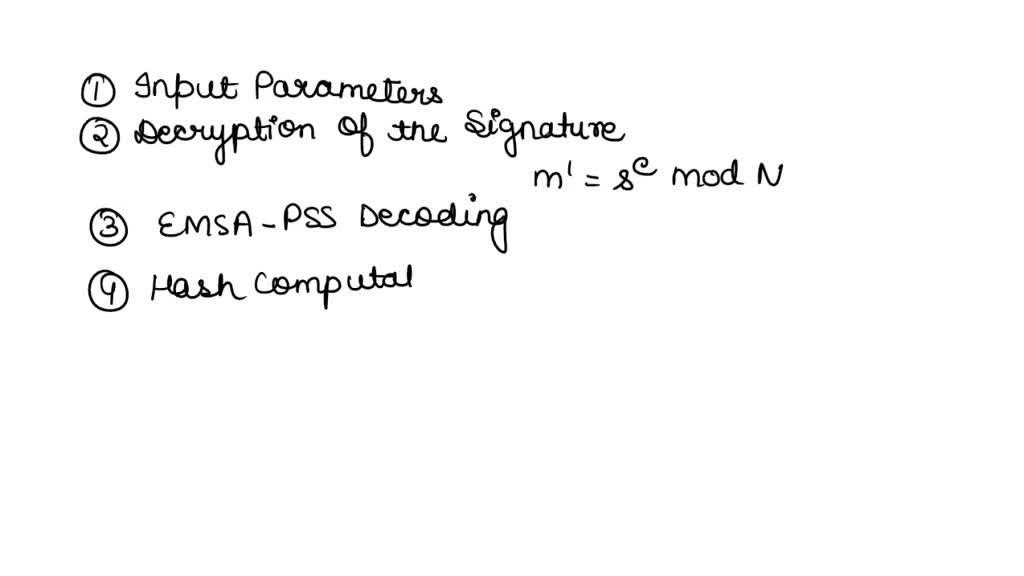 ① Input Parameters
② Decryption of the Signature
m' = s^e mod N
③ EMSA-PSS Decoding
④ Hash Computat